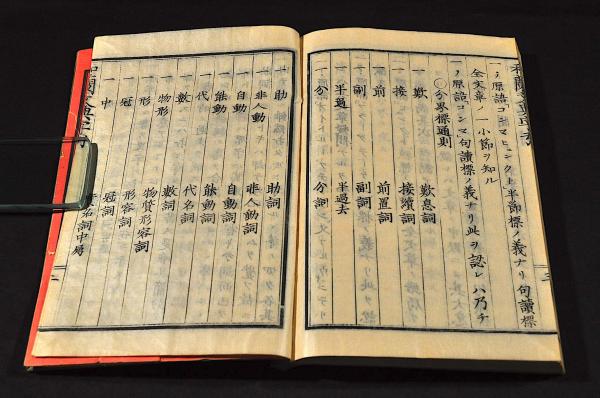 一ノ原語コンマピュンクト半節標ノ義ナリ句讀標
一ノ原語コンマ句讀標ノ義ナリ此ヲ認レハ乃チ
全文章ノ一小節ヲ知ル
〇分界標通則
一 歎 歎息詞
一 接 接續詞
一 前 前置詞
一 副 副詞
一 半過 半過去
一 分 分詞
一 助 助詞
一 非人動 非人動詞
一 自動 自動詞
一 能動 能動詞
一 代 代名詞
一 數 數詞
一 物形 物質形容詞
一 形 形容詞
一 冠 冠詞
一 中 名詞中屬